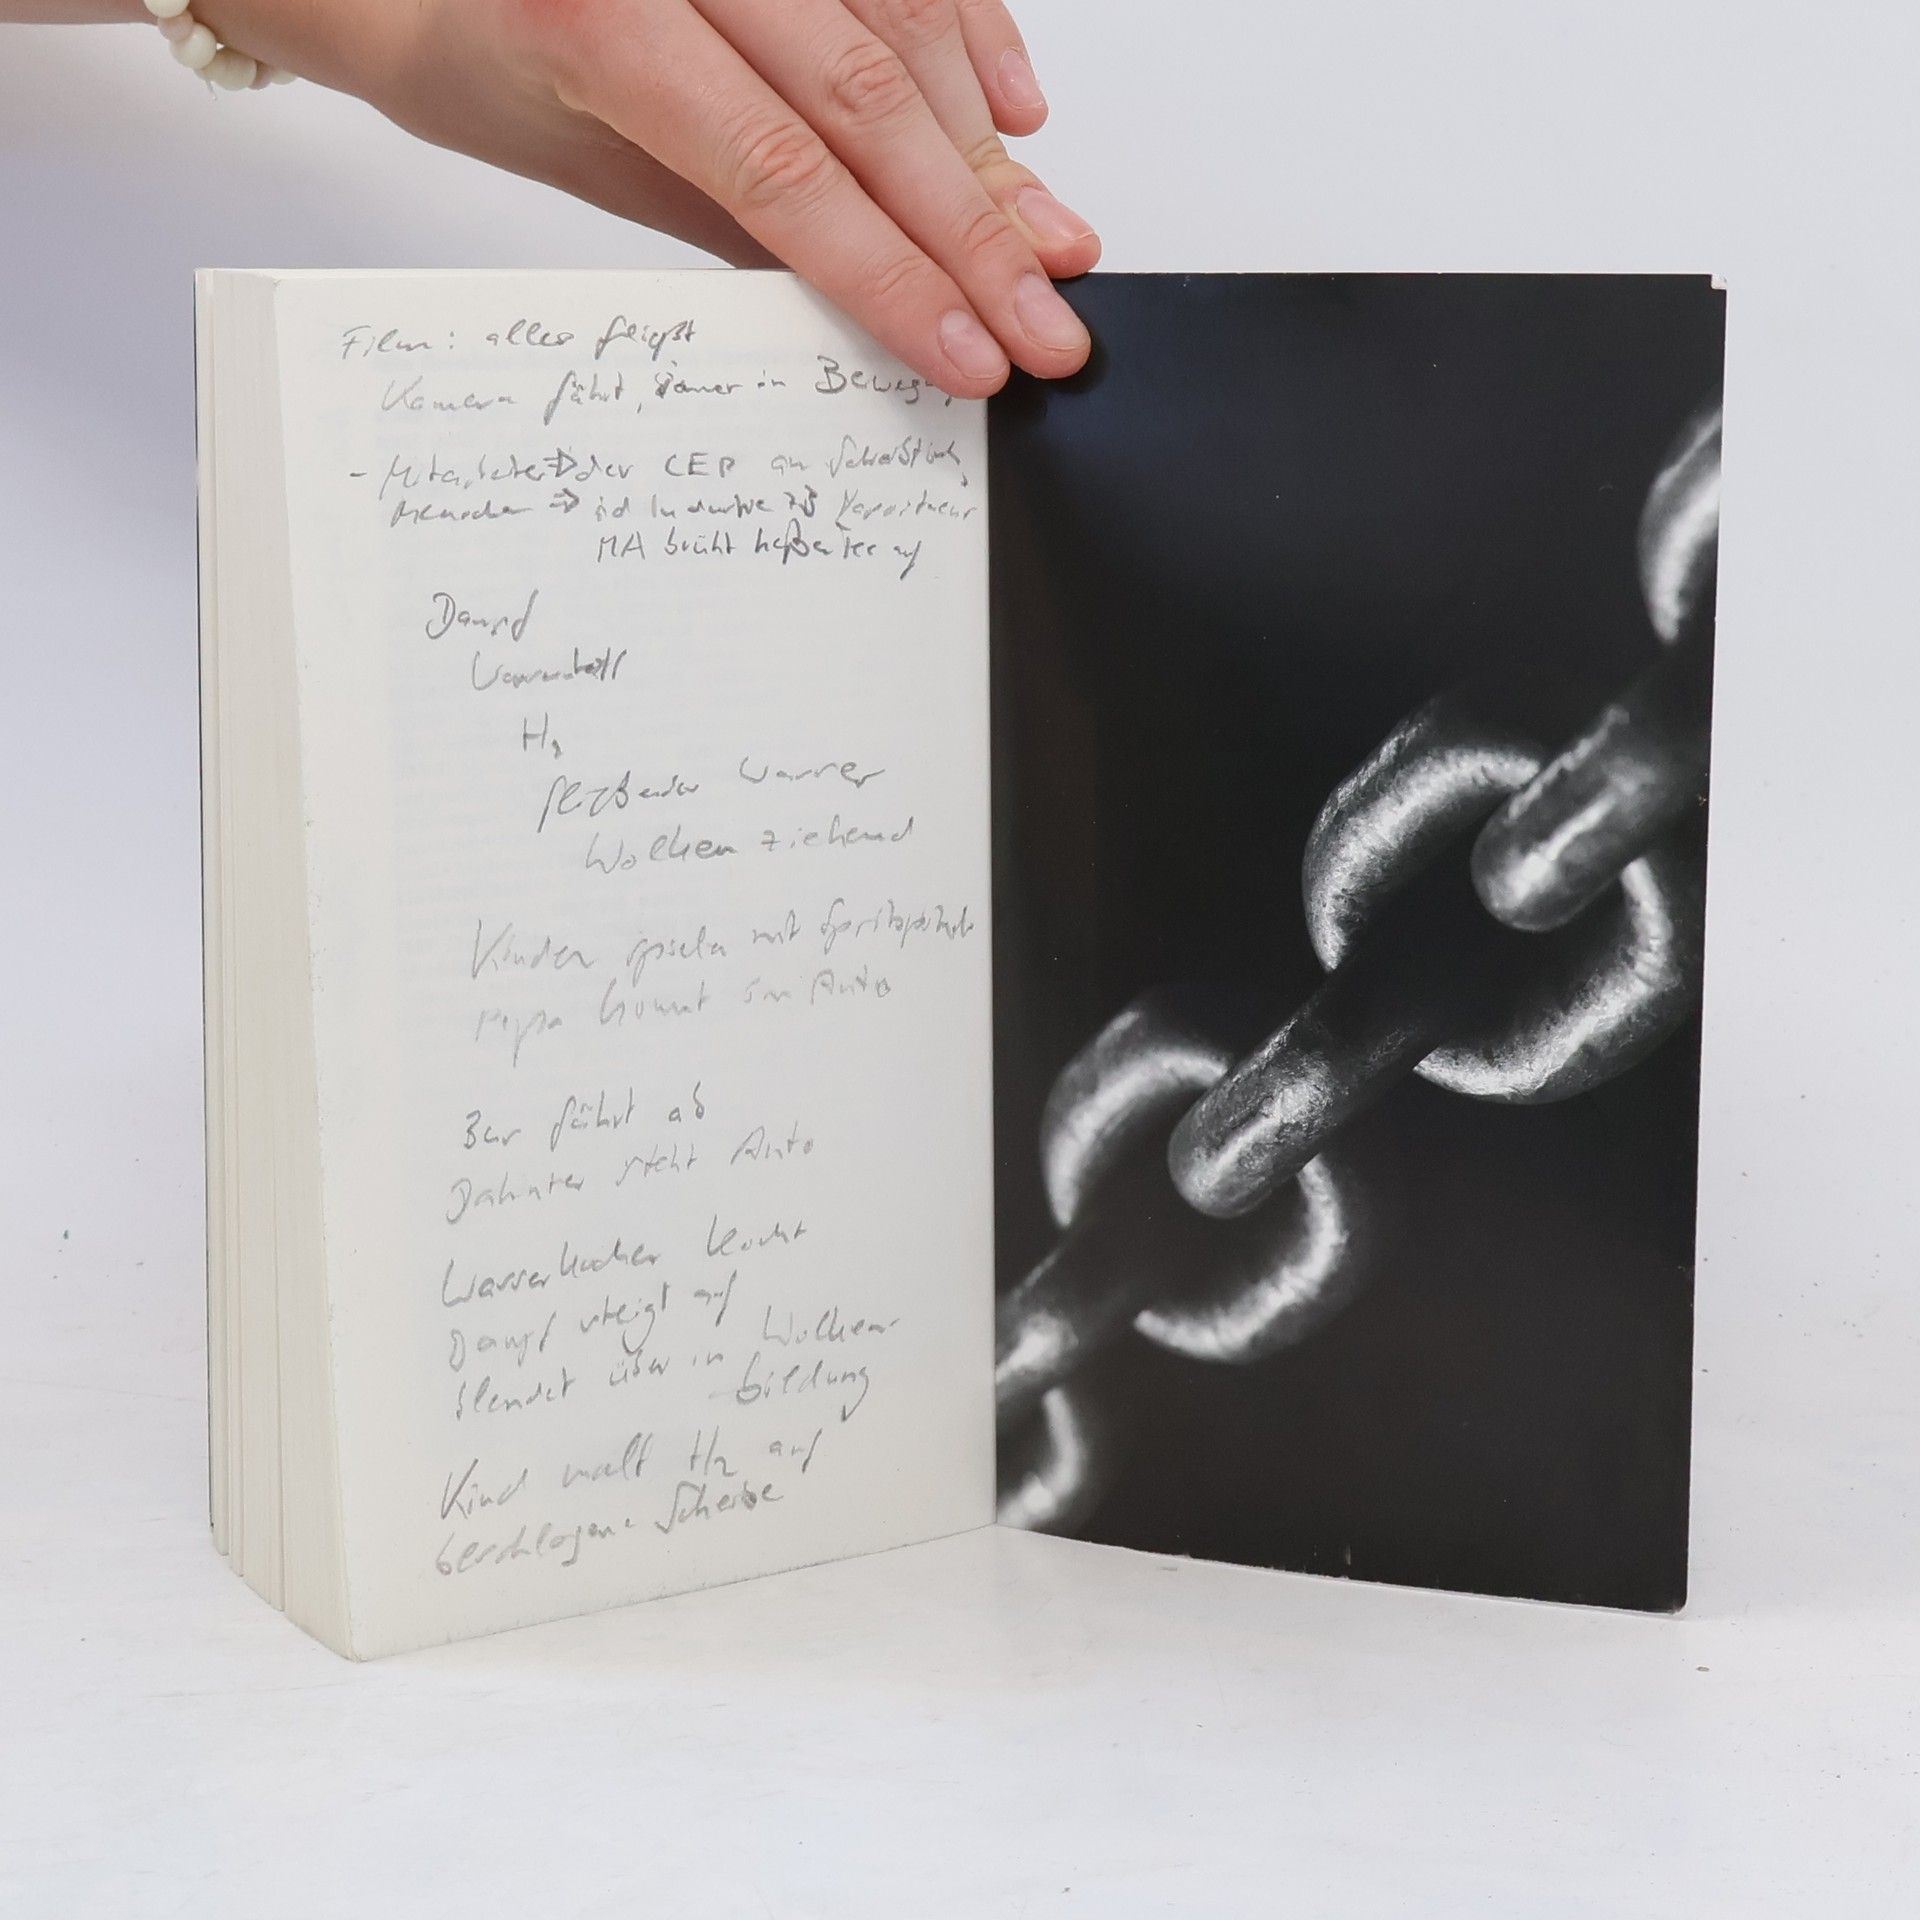 Film: alles fließt
Kamera fährt, immer in Bewegung
- Mitarbeiter der CEP an Schreibtisch,
Menschen → id Industrie zB
MA brüht heißen Tee auf
Dampf
H2
fließendes Wasser
Wolken ziehend
Kinder spielen mit Spritzpistole
Papa kommt im Auto
Bus fährt ab
Dahinter steht Auto
Wasserkocher kocht
Dampf steigt auf
blendet über in Wolken-
bildung
Kind malt H2 auf
beschlagene Scheibe